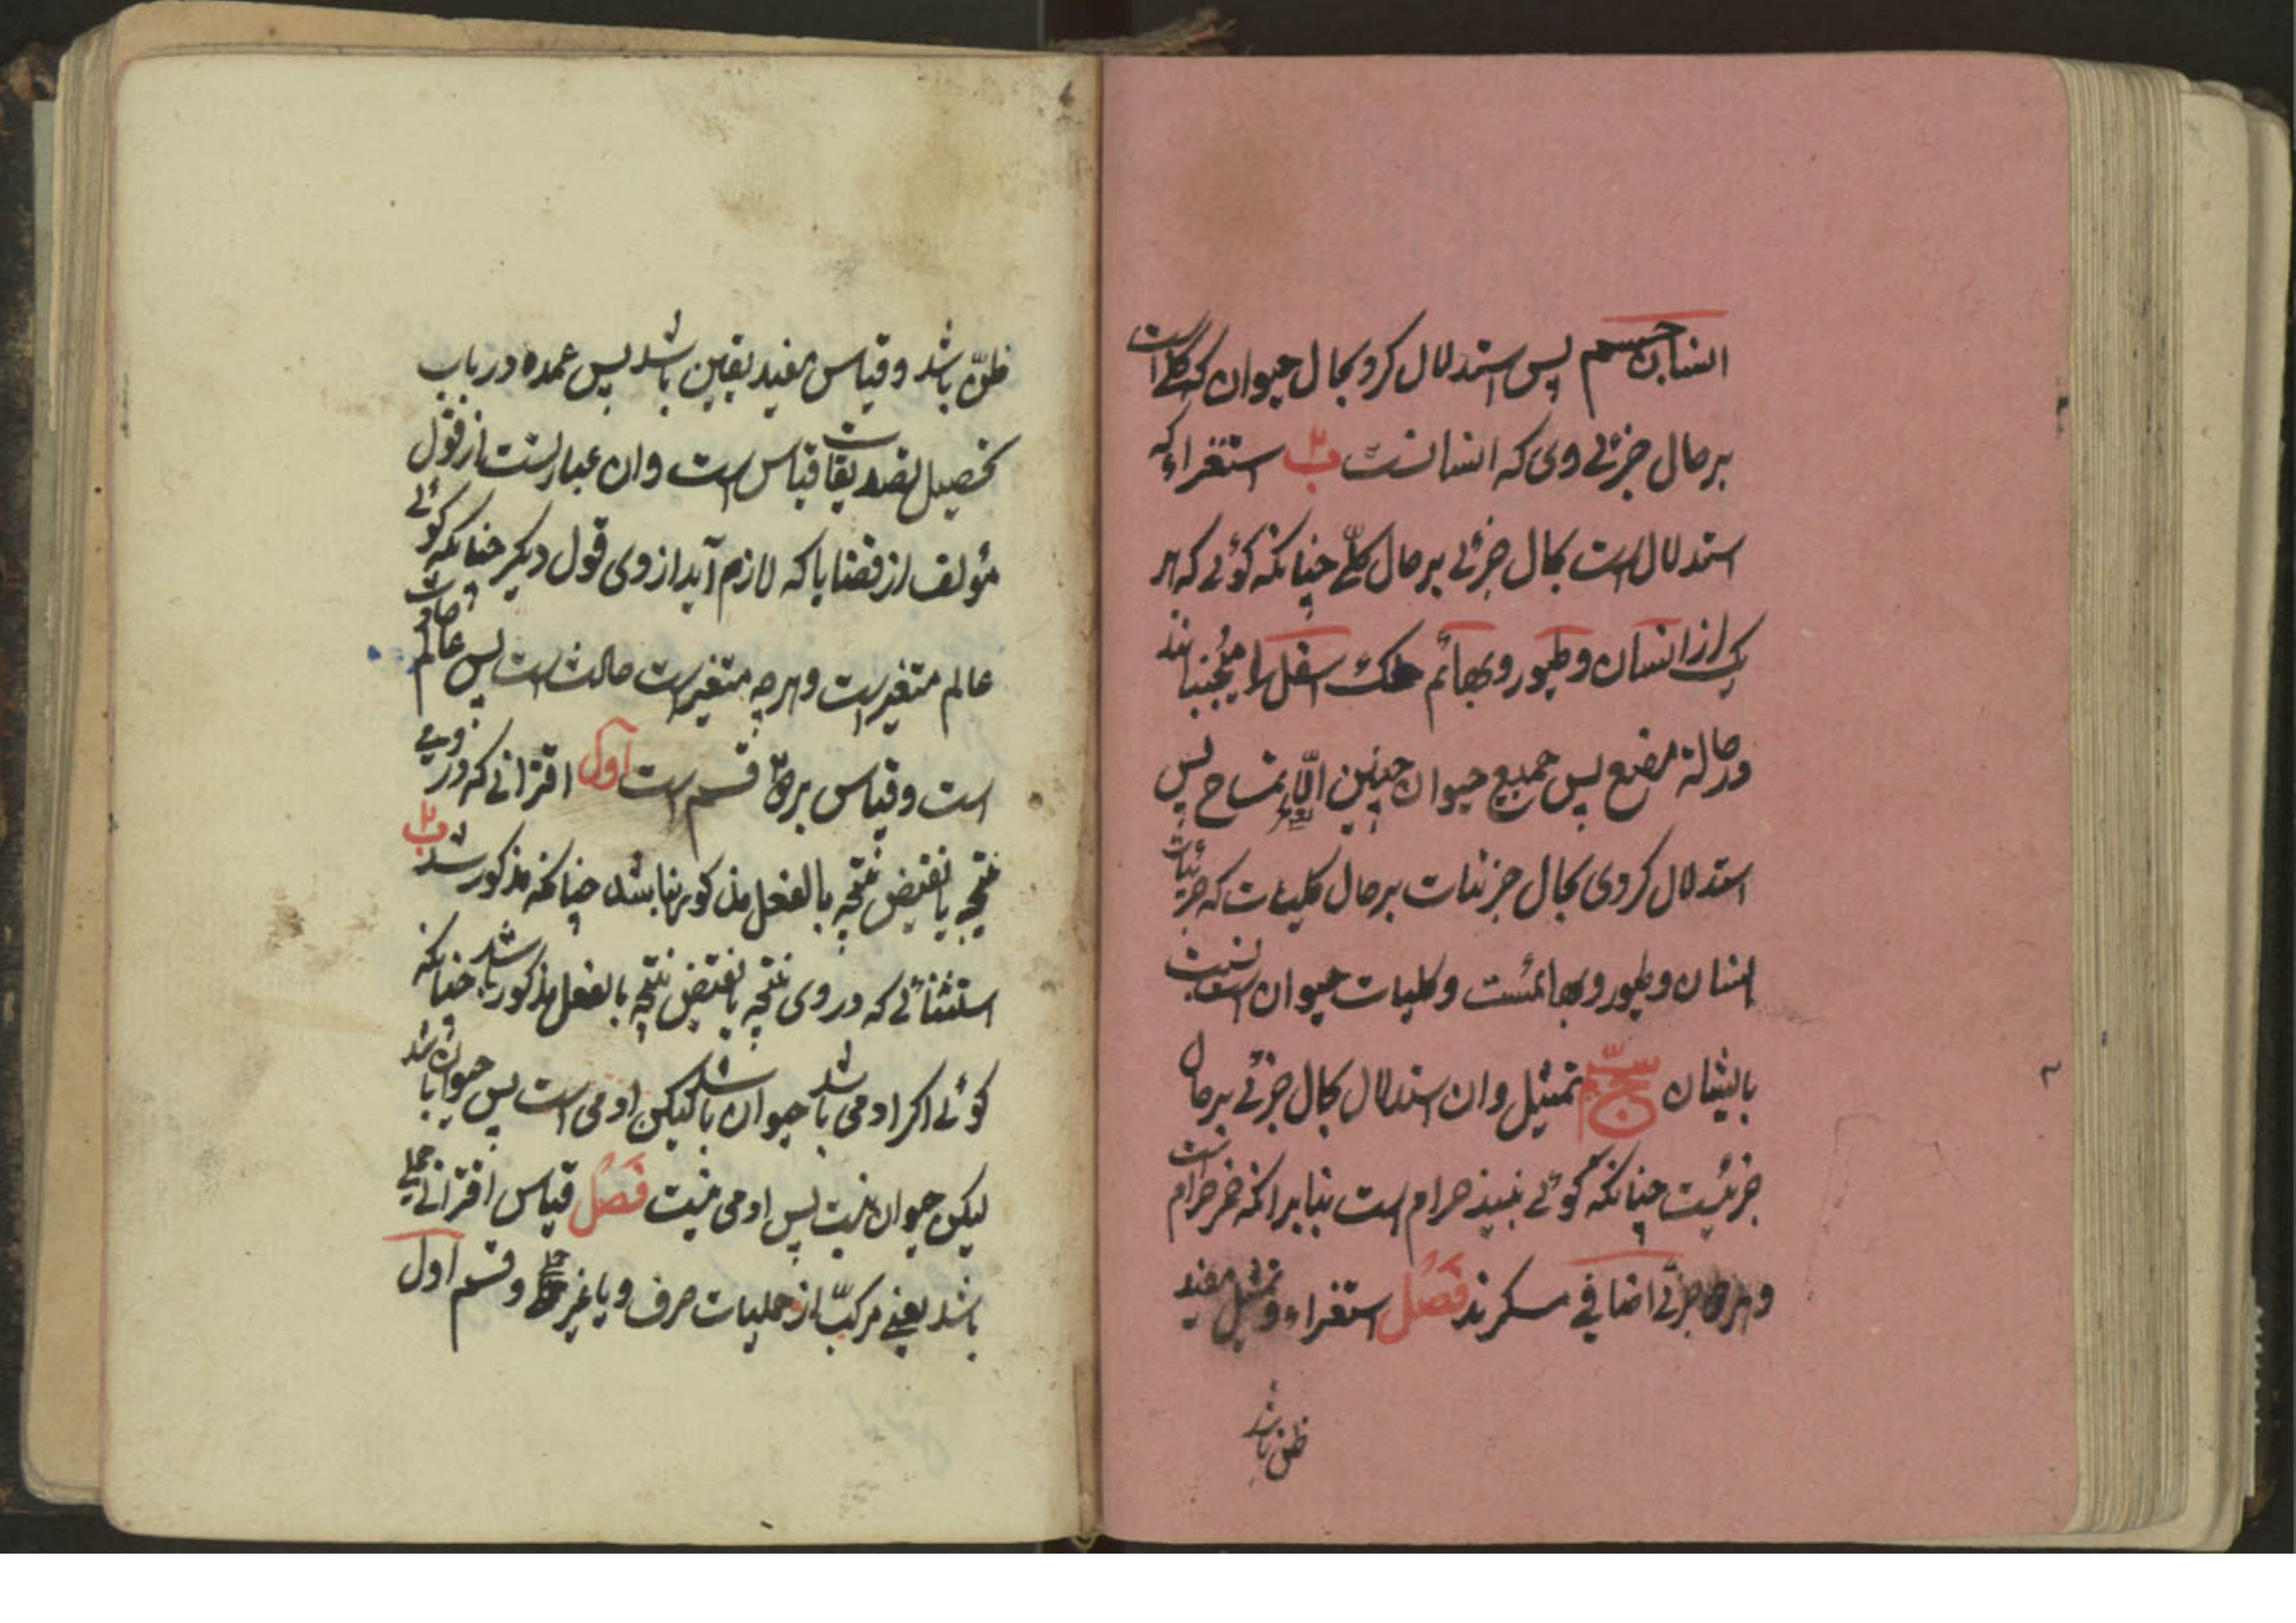 انسان جسم پس استدلال کرد بحال حیوان که کلی است
بر حال جزئی وی که انسانست ب۲ استقراء که
استدلال است بحال جزئی بر حال کلّی چنانکه کوئی که هر
یک از انسان و طیور و بهائم فک اسفل را میجنبانند
در حالة مضغ پس جمیع حیوان چنین الّا تمساح پس
استدلال کردی بحال جزئیات بر حال کلیات که جزئیات
انسان و طیور و بهائمست و کلیات حیوان است نسبت
بایشان ج تمثیل و ان استدلال بحال جزئی بر حال
جزئیست چنانکه کوئی نبیذ حرام است بنابر انکه خمر حرام است
و هر دو جزئی اضافی مسکرند فَصْل استقراء و تمثیل مفید
ظن باشد
ظنّ باشد و قیاس مفید یقین باشد پس عمده در باب
تحصیل تصدیقات قیاس است و ان عبارتست از قول
مؤلف از قضایا که لازم آید از وی قول دیکر چنانکه کوئی
عالم متغیر است و هرچه متغیر است حادث است پس عالم حادث
است و قیاس بر دو قسم است اول اقترانی که در وی
نتیجه یا نقیض نتیجه بالفعل مذکور نباشد چنانکه مذکور شد ب۲
استثنائی که در وی نتیجه یا نقیض نتیجه بالفعل مذکور باشد چنانکه
کوئی اکر ادمی باشد حیوان باشد لیکن ادمی است پس حیوان باشد
لیکن حیوان نیست پس ادمی نیست فَصْل قیاس اقترانی حملی
باشد یعنی مرکبّ از حملیات صرف و یا غیر حملی و قسم اول